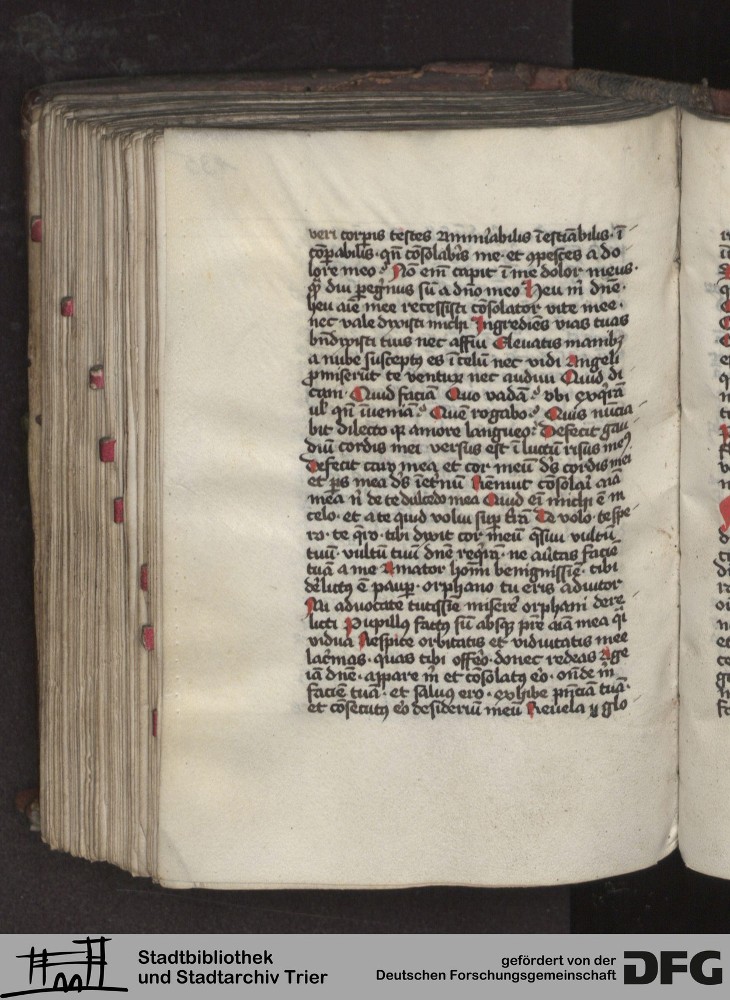 veri corpis testes Ammirabilis īestiābilis · ī
cōparabilis · qn̄ cōsolab'is me · et qpesces a do
lore meo Nō em̄ capit ī me dolor meus ·
qͣ diu peg'nus sū a dn̄o meo Heu m̄ dn̄e ·
heu aīe mee recessisti cōsolator vite mee ·
nec vale dixisti michi Ingrediēs vias tuas
bn̄dixisti tuis nec affui Eleuatis manibꝫ
a nube susceptꝰ es ī celū nec vidi Angeli
ꝓmiserūt te venturū nec audiui Quid di
cam · Quid faciā Quo vadā · vbi exq'rā
ul' qn̄ īueniā · Quē rogabo · Quis nūcia
bit dilecto qꝛ amore langueo · Defecit gau
diū cordis mei versus est ī luctū risus meꝰ
Defecit caro mea et cor meū ds̄ cordis mei
et ps mea ds̄ īet'nū Renuit cōsolai aīa
mea n̄ de te dulcedo mea Quid em̄ michi ē in
celo · et a te quid volui sup t'rā Te volo · te spe
ro · te q̄ro · tibi dixit cor meū q̄siui vultū
tuū · vultū tuū dn̄e req'rā · ne au'tas faciē
tuā a me Amator hoīm benignissīe · tibi
de'lictꝰ ē paup · orphano tu eris adiutor
Mi aduocate tutissīe misere' orphani dere
licti Pupillꝰ factꝰ sū absqꝫ pre aīa mea q̄i
vidua Respice orbitatis et viduitatis mee
lac'mas · quas tibi offe'o · donec redeas Age
iā dn̄e · appare m̄ et cōsolatꝰ e'o · ondē m̄
faciē tuā · et saluꝰ ero · exhibe pn̄ciā tuā ·
et cōsecutꝰ e'o desideriū meū Reuela glo
Stadtbibliothek
und Stadtarchiv Trier
gefördert von der
Deutschen Forschungsgemeinschaft
DFG